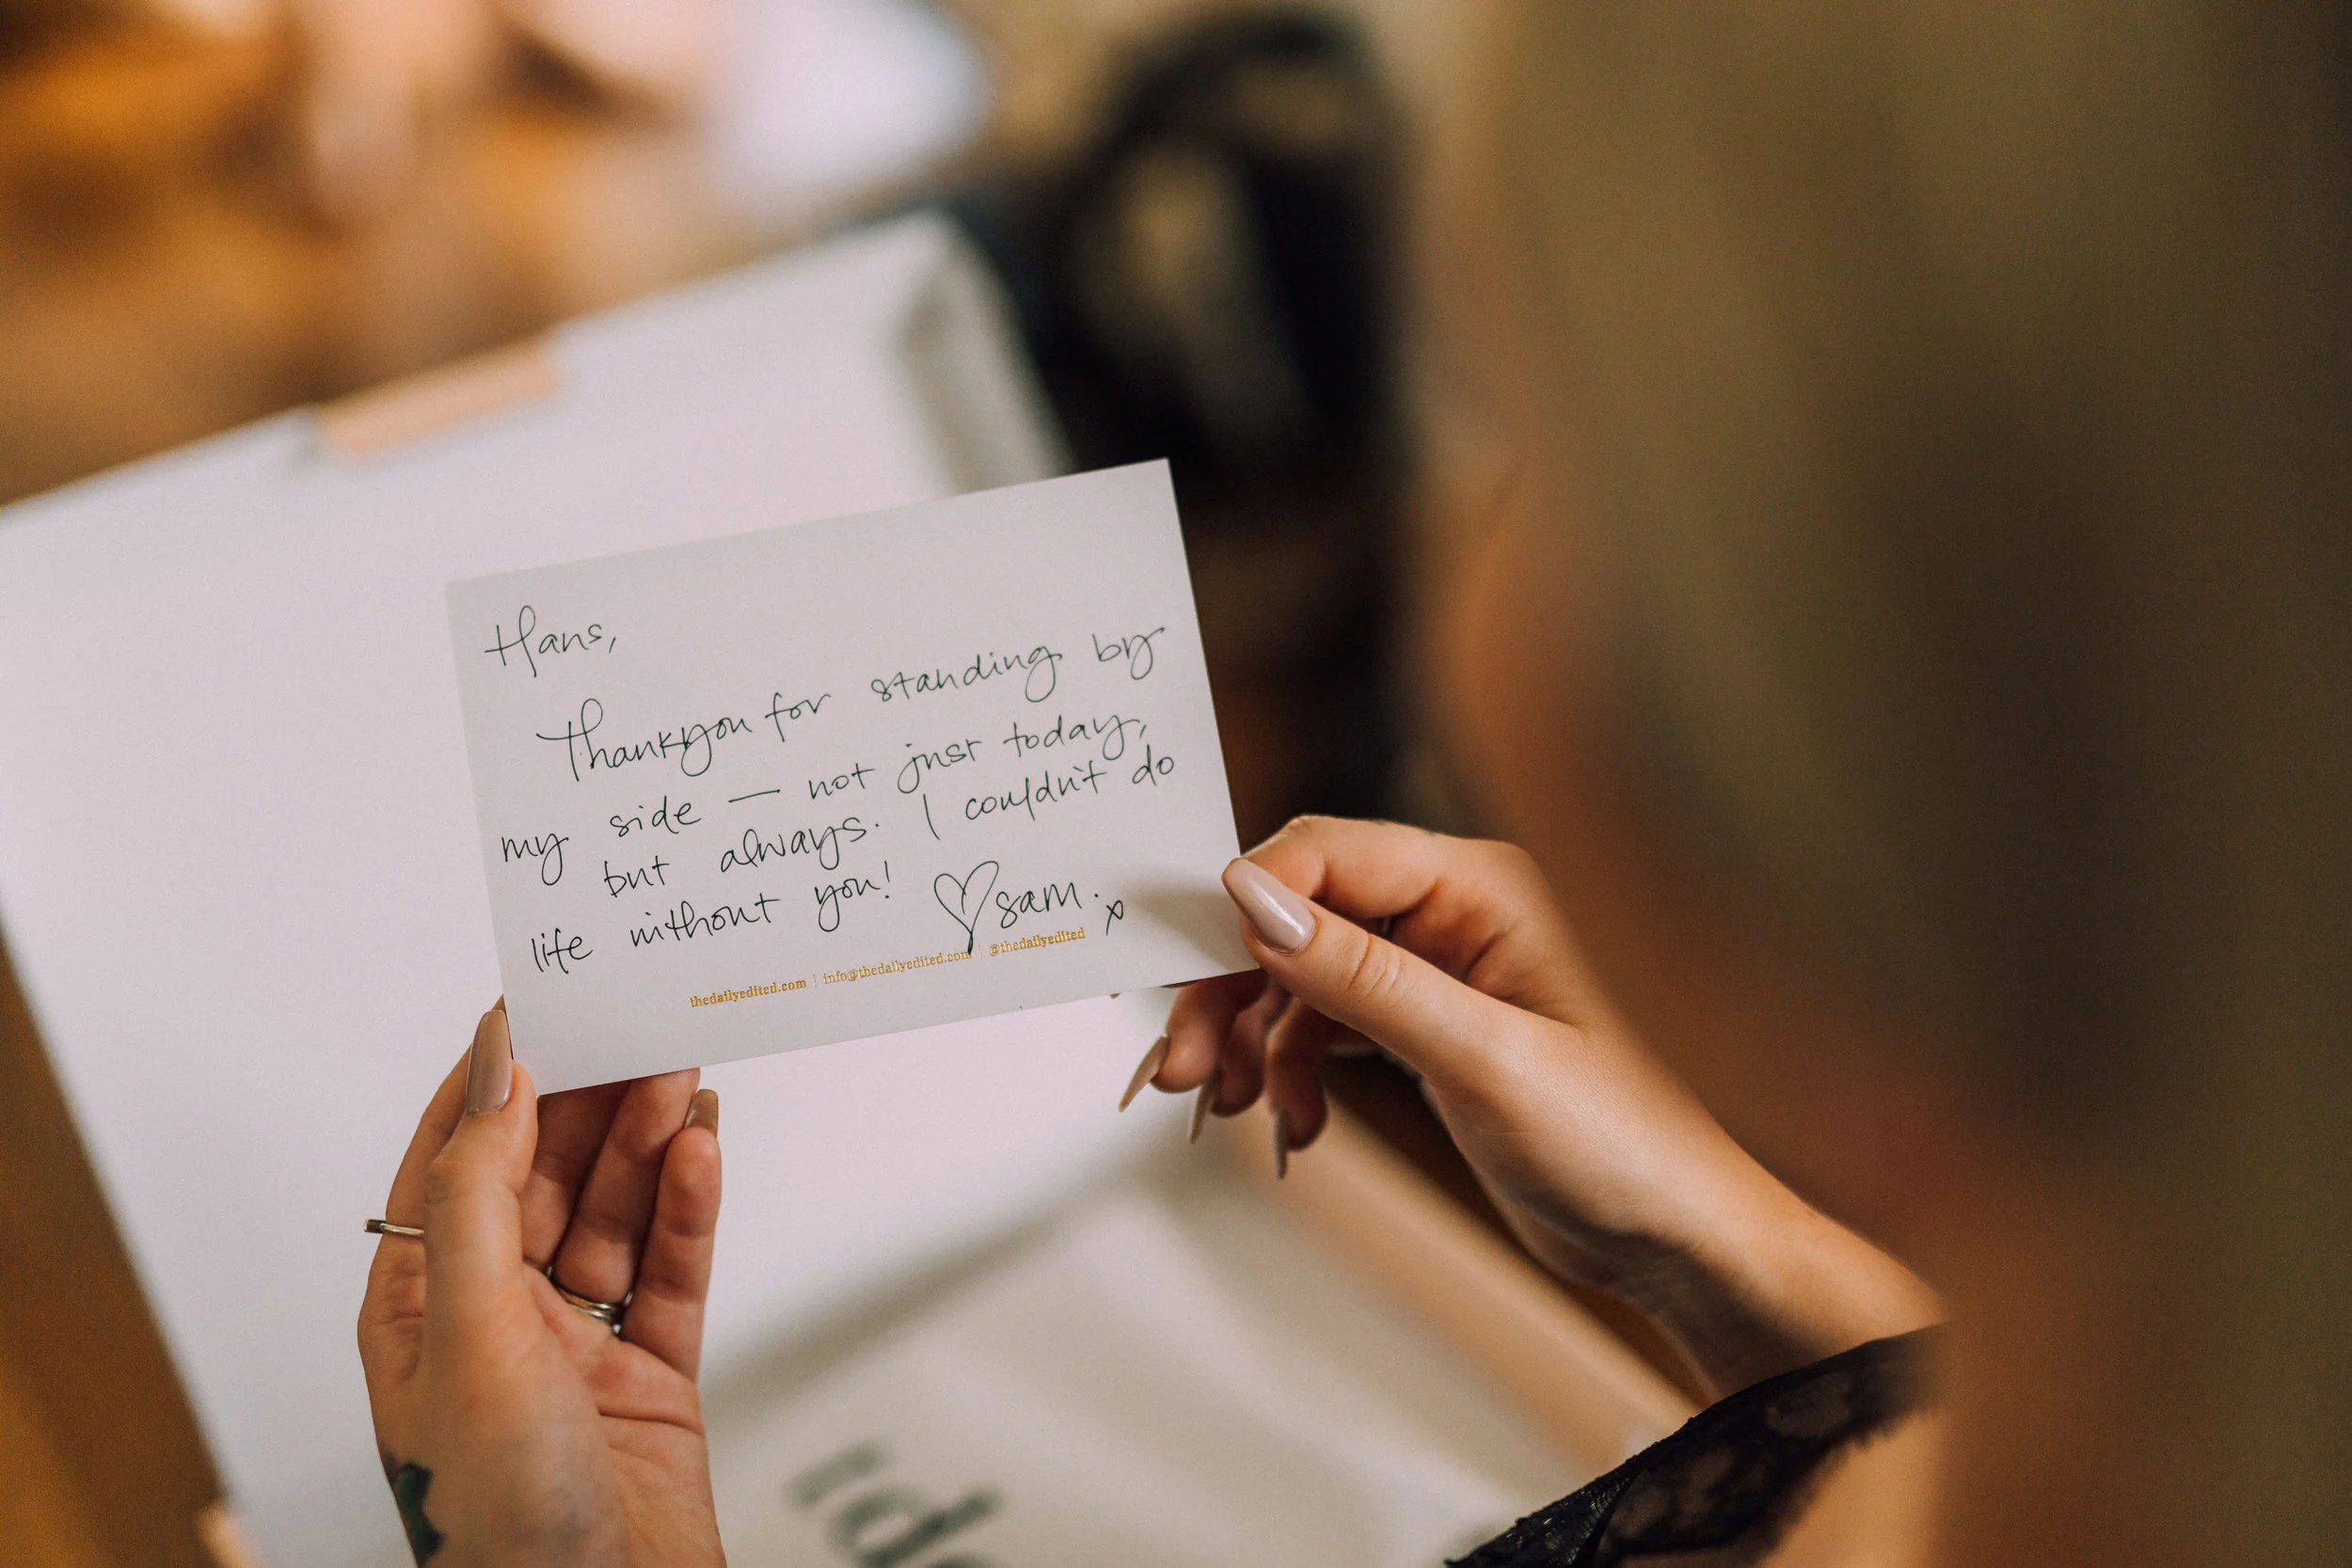 Hans,
Thankyou for standing by
my side — not just today,
but always. I couldn't do
life without you! ♡ sam. x
thedailyedited.com | info@thedailyedited.com | @thedailyedited